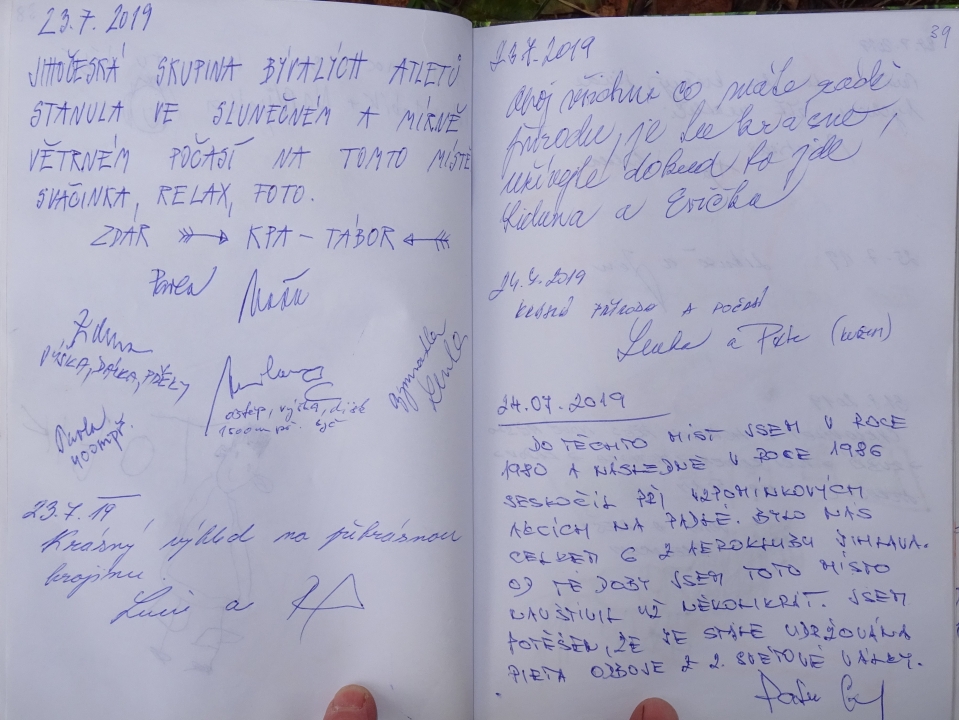 23.7.2019
JIHOČESKÁ SKUPINA BÝVALÝCH ATLETŮ
STANULA VE SLUNEČNÉM A MÍRNĚ
VĚTRNÉM POČASÍ NA TOMTO MÍSTĚ
SVAČINKA, RELAX, FOTO.
ZDAR KPA - TÁBOR
Pavel
Zdena
VÝŠKA, DÁLKA,
oštěp, výška, disk
1500m př.
gymnastka
Pavla
400m př.
23.7.19
Krásný výhled na překrásnou
krajinu.
Lucie a
39
23.7.2019
Ahoj všichni co máte rádi
přírodu, je tu krásně,
užívejte dokud to jde
Liduna a Evička
24.7.2019
KRÁSNÁ PŘÍRODA A POČASÍ
Lenka a Petr
24.07.2019
DO TĚCHTO MÍST JSEM V ROCE
1980 A NÁSLEDNĚ V ROCE 1986
SESKOČIL PŘI VZPOMÍNKOVÝCH
AKCÍCH NA PADLÉ. BYLO NÁS
CELKEM 6 Z AEROKLUBU JIHLAVA.
OD TÉ DOBY JSEM TOTO MÍSTO
NAVŠTÍVIL UŽ NĚKOLIKRÁT. JSEM
POTĚŠEN, ŽE JE STÁLE UDRŽOVÁNA
PIETA ODBOJE Z 2. SVĚTOVÉ VÁLKY.